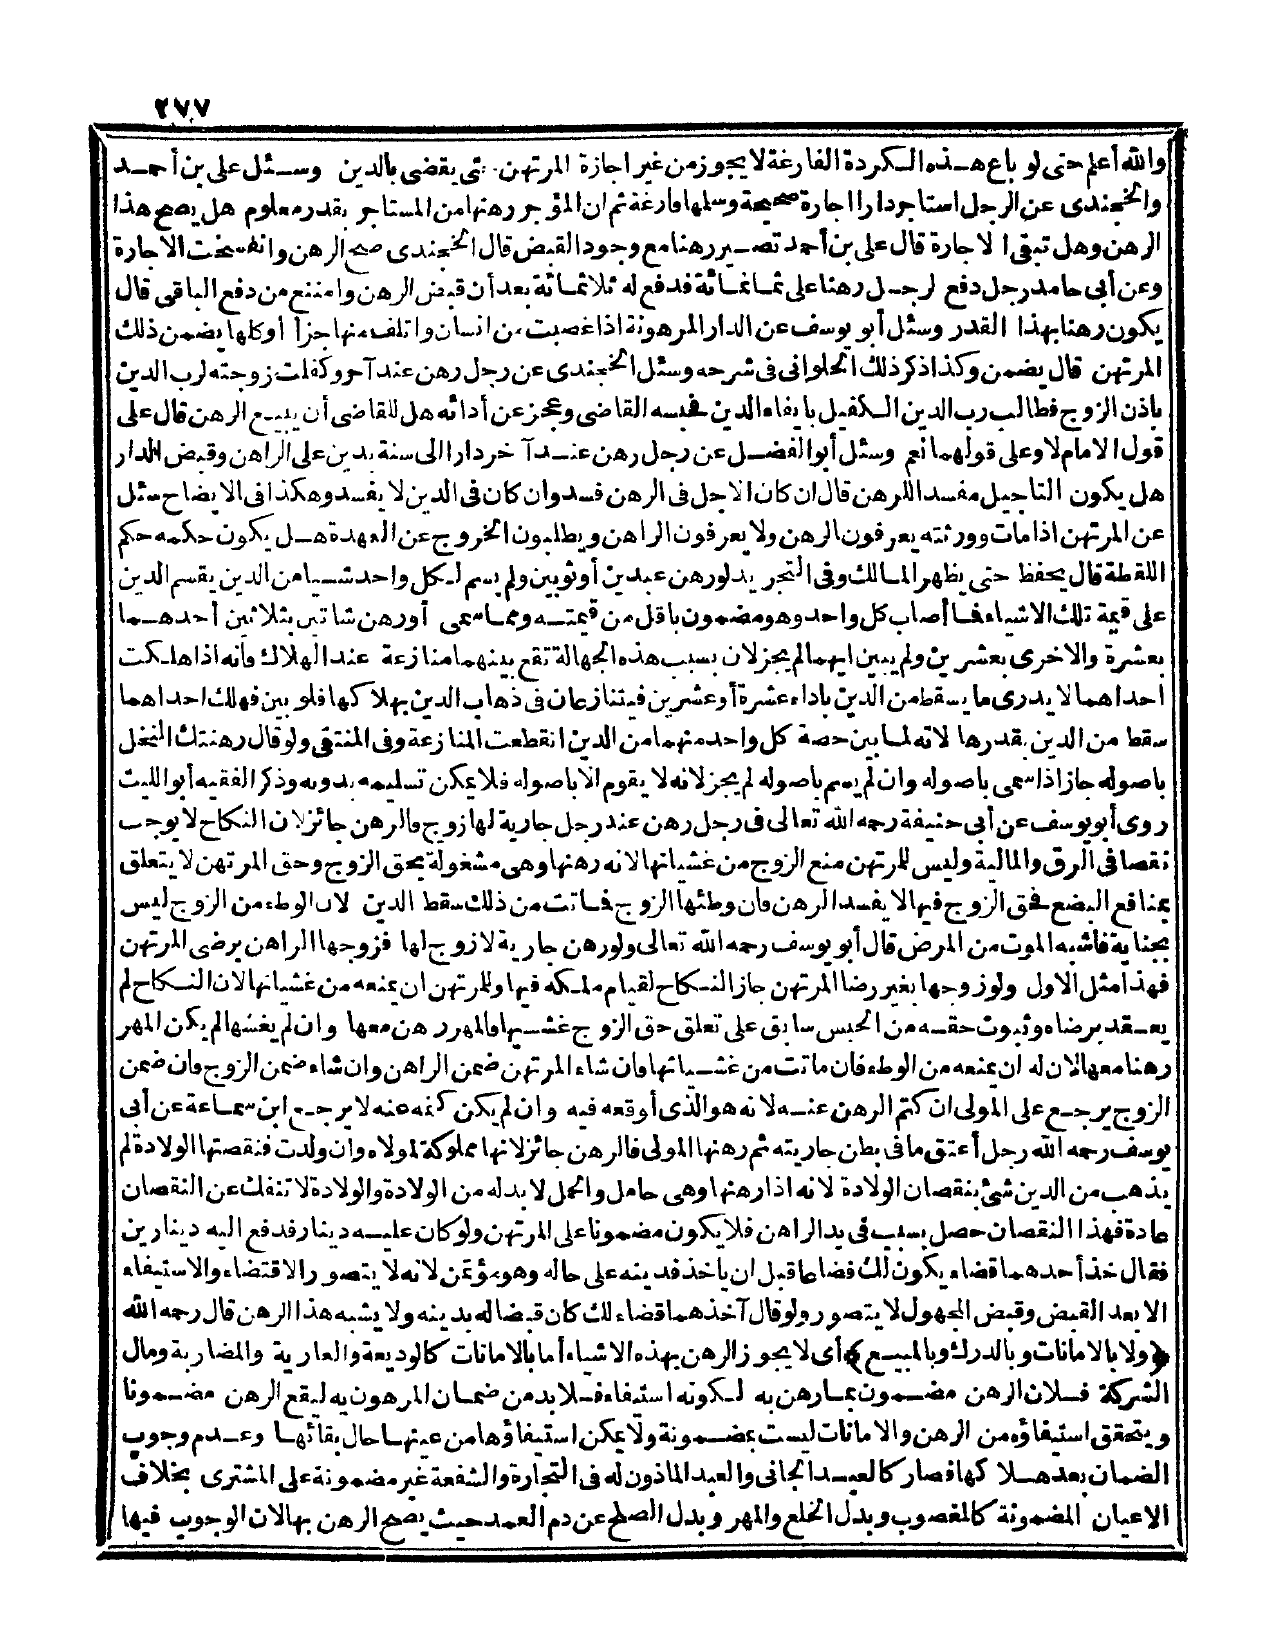 ٢٧٧
والله أعلم حتى لو باع هذه الكردة الفارغة لا يجوز من غير اجازة المرتهن حتى يقضى بالدين وسئل على بن أحمد
والخجندى عن الرجل استاجر دارا اجارة صحيحة وسلمها فارغة ثم ان المؤجر رهنها من المستاجر بقدر معلوم هل يصح هذا
الرهن وهل تبقى الاجارة قال على بن أحمد تصير رهنا مع وجود القبض قال الخجندى صح الرهن وانفسخت الاجارة
وعن أبى حامد رجل دفع لرجل رهنا على ثمانمائة فدفع له ثلاثمائة بعد أن قبض الرهن وامتنع من دفع الباقى قال
يكون رهنا بهذا القدر وسئل أبو يوسف عن الدار المرهونة اذا غصبت من انسان واتلف منها جزأ أو كلها يضمن ذلك
المرتهن قال يضمن وكذا ذكر ذلك الحلوانى فى شرحه وسئل الخجندى عن رجل رهن عند آخر وكفلت زوجته لرب الدين
باذن الزوج فطالب رب الدين الكفيل بايفاء الدين فحبسه القاضى وعجز عن أدائه هل للقاضى أن يبيع الرهن قال على
قول الامام لا وعلى قولهما نعم وسئل أبو الفضل عن رجل رهن عند آخر دارا الى سنة بدين على الراهن وقبض الدار
هل يكون التاجيل مفسد اللرهن قال ان كان الاجل فى الرهن فسد وان كان فى الدين لا يفسد وهكذا فى الايضاح سئل
عن المرتهن اذا مات وورثته يعرفون الرهن ولا يعرفون الراهن ويطلبون الخروج عن العهدة هل يكون حكمه حكم
اللقطة قال يحفظ حتى يظهر المالك وفى التجريد لو رهن عبدين أو ثوبين ولم يسم لكل واحد شيا من الدين يقسم الدين
على قيمة تلك الاشياء فما أصاب كل واحد وهو مضمون باقل من قيمته ومما سمى أو رهن شاتين بثلاثين أحدهما
بعشرة والاخرى بعشرين ولم يبين ايهما لم يجز لان بسبب هذه الجهالة تقع بينهما منازعة عند الهلاك فأنه اذا هلكت
احداهما لا يدرى ما يسقط من الدين باداء عشرة أو عشرين فيتنازعان فى ذهاب الدين بهلاكها فلو بين فهلك احداهما
سقط من الدين بقدرها لانه لما بين حصة كل واحد منهما من الدين انقطعت المنازعة وفى المنتقى ولو قال رهنتك النخل
باصوله جاز اذا سمى باصوله وان لم يسم باصوله لم يجز لانه لا يقوم الا باصوله فلا يمكن تسليمه بدونه وذكر الفقيه أبو الليث
روى أبو يوسف عن أبى حنيفة رحمه الله تعالى فى رجل رهن عند رجل جارية لها زوج فالرهن جائز لان النكاح لا يوجب
نقصا فى الرق والمالية وليس للمرتهن منع الزوج من غشيانها لانه رهنها وهى مشغولة بحق الزوج وحق المرتهن لا يتعلق
بمنافع البضع فحق الزوج فيها لا يفسد الرهن فان وطئها الزوج فماتت من ذلك سقط الدين لان الوطء من الزوج ليس
بجناية فاشبه الموت من المرض قال أبو يوسف رحمه الله تعالى ولو رهن جارية لا زوج لها فزوجها الراهن برضى المرتهن
فهذا مثل الاول ولو زوجها بغير رضا المرتهن جاز النكاح لقيام ملكه فيها وللمرتهن ان يمنعه من غشيانها لان النكاح لم
يعقد برضاه وثبوت حقه من الحبس سابق على تعلق حق الزوج غشيها فالمهر رهن معها وان لم يغشها لم يكن المهر
رهنا معها لان له ان يمنعه من الوطء فان ماتت من غشيانها فان شاء المرتهن ضمن الراهن وان شاء ضمن الزوج فان ضمن
الزوج يرجع على المولى ان كتم الرهن عنه لانه هو الذى أوقعه فيه وان لم يكن كتمه عنه لا يرجع ابن سماعة عن أبى
يوسف رحمه الله رجل أعتق ما فى بطن جاريته ثم رهنها المولى فالرهن جائز لانها مملوكة لمولاه وان ولدت فنقصتها الولادة لم
يذهب من الدين شئ بنقصان الولادة لانه اذا رهنها وهى حامل والحمل لا بد له من الولادة والولادة لا تنفك عن النقصان
عادة فهذا النقصان حصل بسبب فى يد الراهن فلا يكون مضمونا على المرتهن ولو كان عليه دينار فدفع اليه دينارين
فقال خذ أحدهما قضاء يكون لك فضاعا قبل ان ياخذ فدينه على حاله وهو مؤتمن لانه لا يتصور الاقتضاء والاستيفاء
الا بعد القبض وقبض المجهول لا يتصور ولو قال آخذهما قضاء لك كان قبضا له بدينه ولا يشبه هذا الرهن قال رحمه الله
﴿ولا بالامانات وبالدرك وبالمبيع﴾ أى لا يجوز الرهن بهذه الاشياء أما بالامانات كالوديعة والعارية والمضاربة ومال
الشركة فلان الرهن مضمون بما رهن به لكونه استيفاء فلا بد من ضمان المرهون به ليقع الرهن مضمونا
ويتحقق استيفاؤه من الرهن والامانات ليست بمضمونة ولا يمكن استيفاؤها من عينها حال بقائها وعدم وجوب
الضمان بعد هلاكها فصار كالعبد الجانى والعبد الماذون له فى التجارة والشفعة غير مضمونة على المشترى بخلاف
الاعيان المضمونة كالمغصوب وبدل الخلع والمهر وبدل الصلح عن دم العمد حيث يصح الرهن بها لان الوجوب فيها